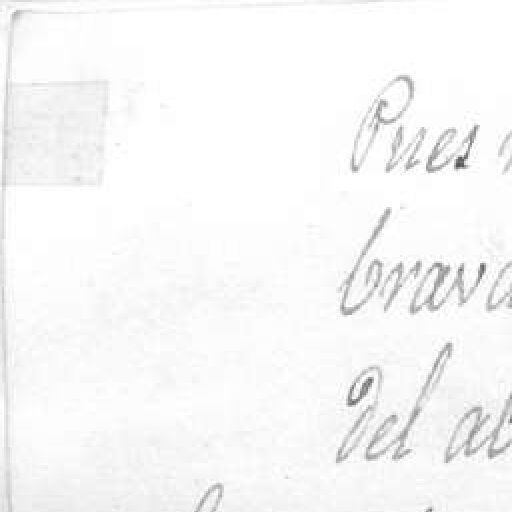 Pues
brava
del al